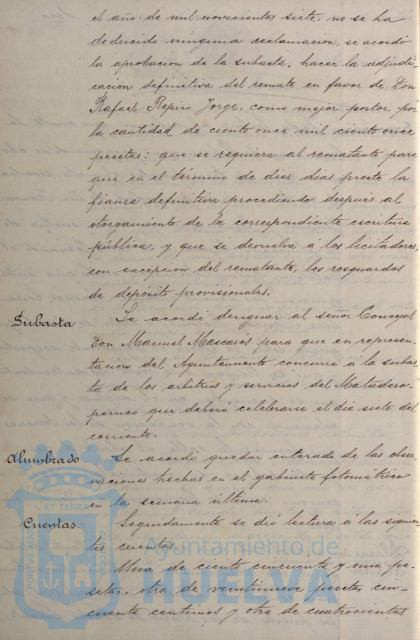 el año de mil novecientos siete, no se ha
deducido ninguna reclamacion, se acordó
la aprobacion de la subasta, hacer la adjudi-
cacion definitiva del remate en favor de Don
Rafael Repiso Jorge, como mejor postor por
la cantidad de ciento once mil ciento once
pesetas: que se requiera al rematante para
que en el término de diez dias preste la
fianza definitiva procediendo despues al
otorgamiento de la correspondiente escritura
pública, y que se devuelva á los licitadores,
con excepcion del rematante, los resguardos
de depósito provisionales.
Subasta Se acordó designar al señor Concejal
Don Manuel Mascarós para que en represen-
tacion del Ayuntamiento concurra á la subas-
ta de los arbitrios y servicios del Matadero
público que deberá celebrarse el dia siete del
corriente.
Alumbrado Se acordó quedar enterado de las obser-
vaciones hechas en el gabinete fotométrico
en la semana última.
Cuentas. Seguidamente se dió lectura á las siguien-
tes cuentas.
Una de ciento cincuenta y una pe-
setas; otra de veintinueve pesetas cin-
cuenta centimos y otra de cuatrocientas
Ayuntamiento de
HUELVA